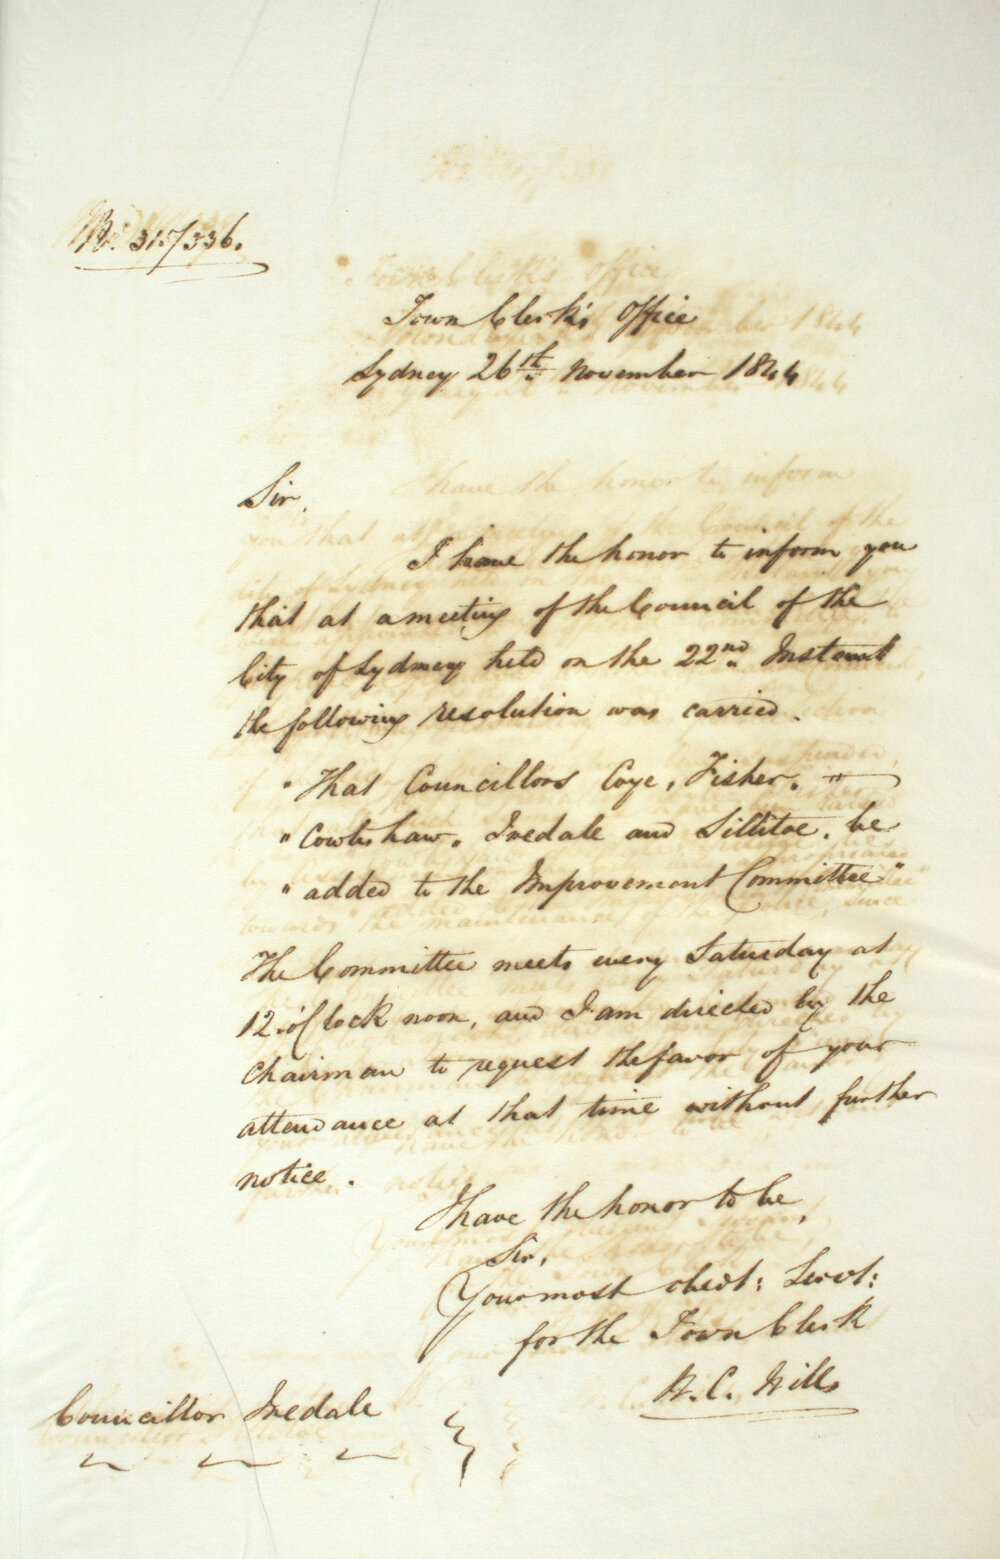 No. 315/336.
Town Clerk's Office
Sydney 26th November 1844
Sir,
I have the honor to inform you
that at a meeting of the Council of the
City of Sydney held on the 22nd. Instant
the following resolution was carried.
" That Councillors Coye, Fisher, "
" Cowlishaw, Iredale and Sillitoe, be
" added to the Improvement Committee"
The Committee meets every Saturday at
12 o'Clock noon, and I am directed by the
Chairman to request the favor of your
attendance at that time without further
notice.
I have the honor to be,
Sir,
Your most obedt: Servt:
for the Town Clerk
W. C. Wills
Councillor Iredale